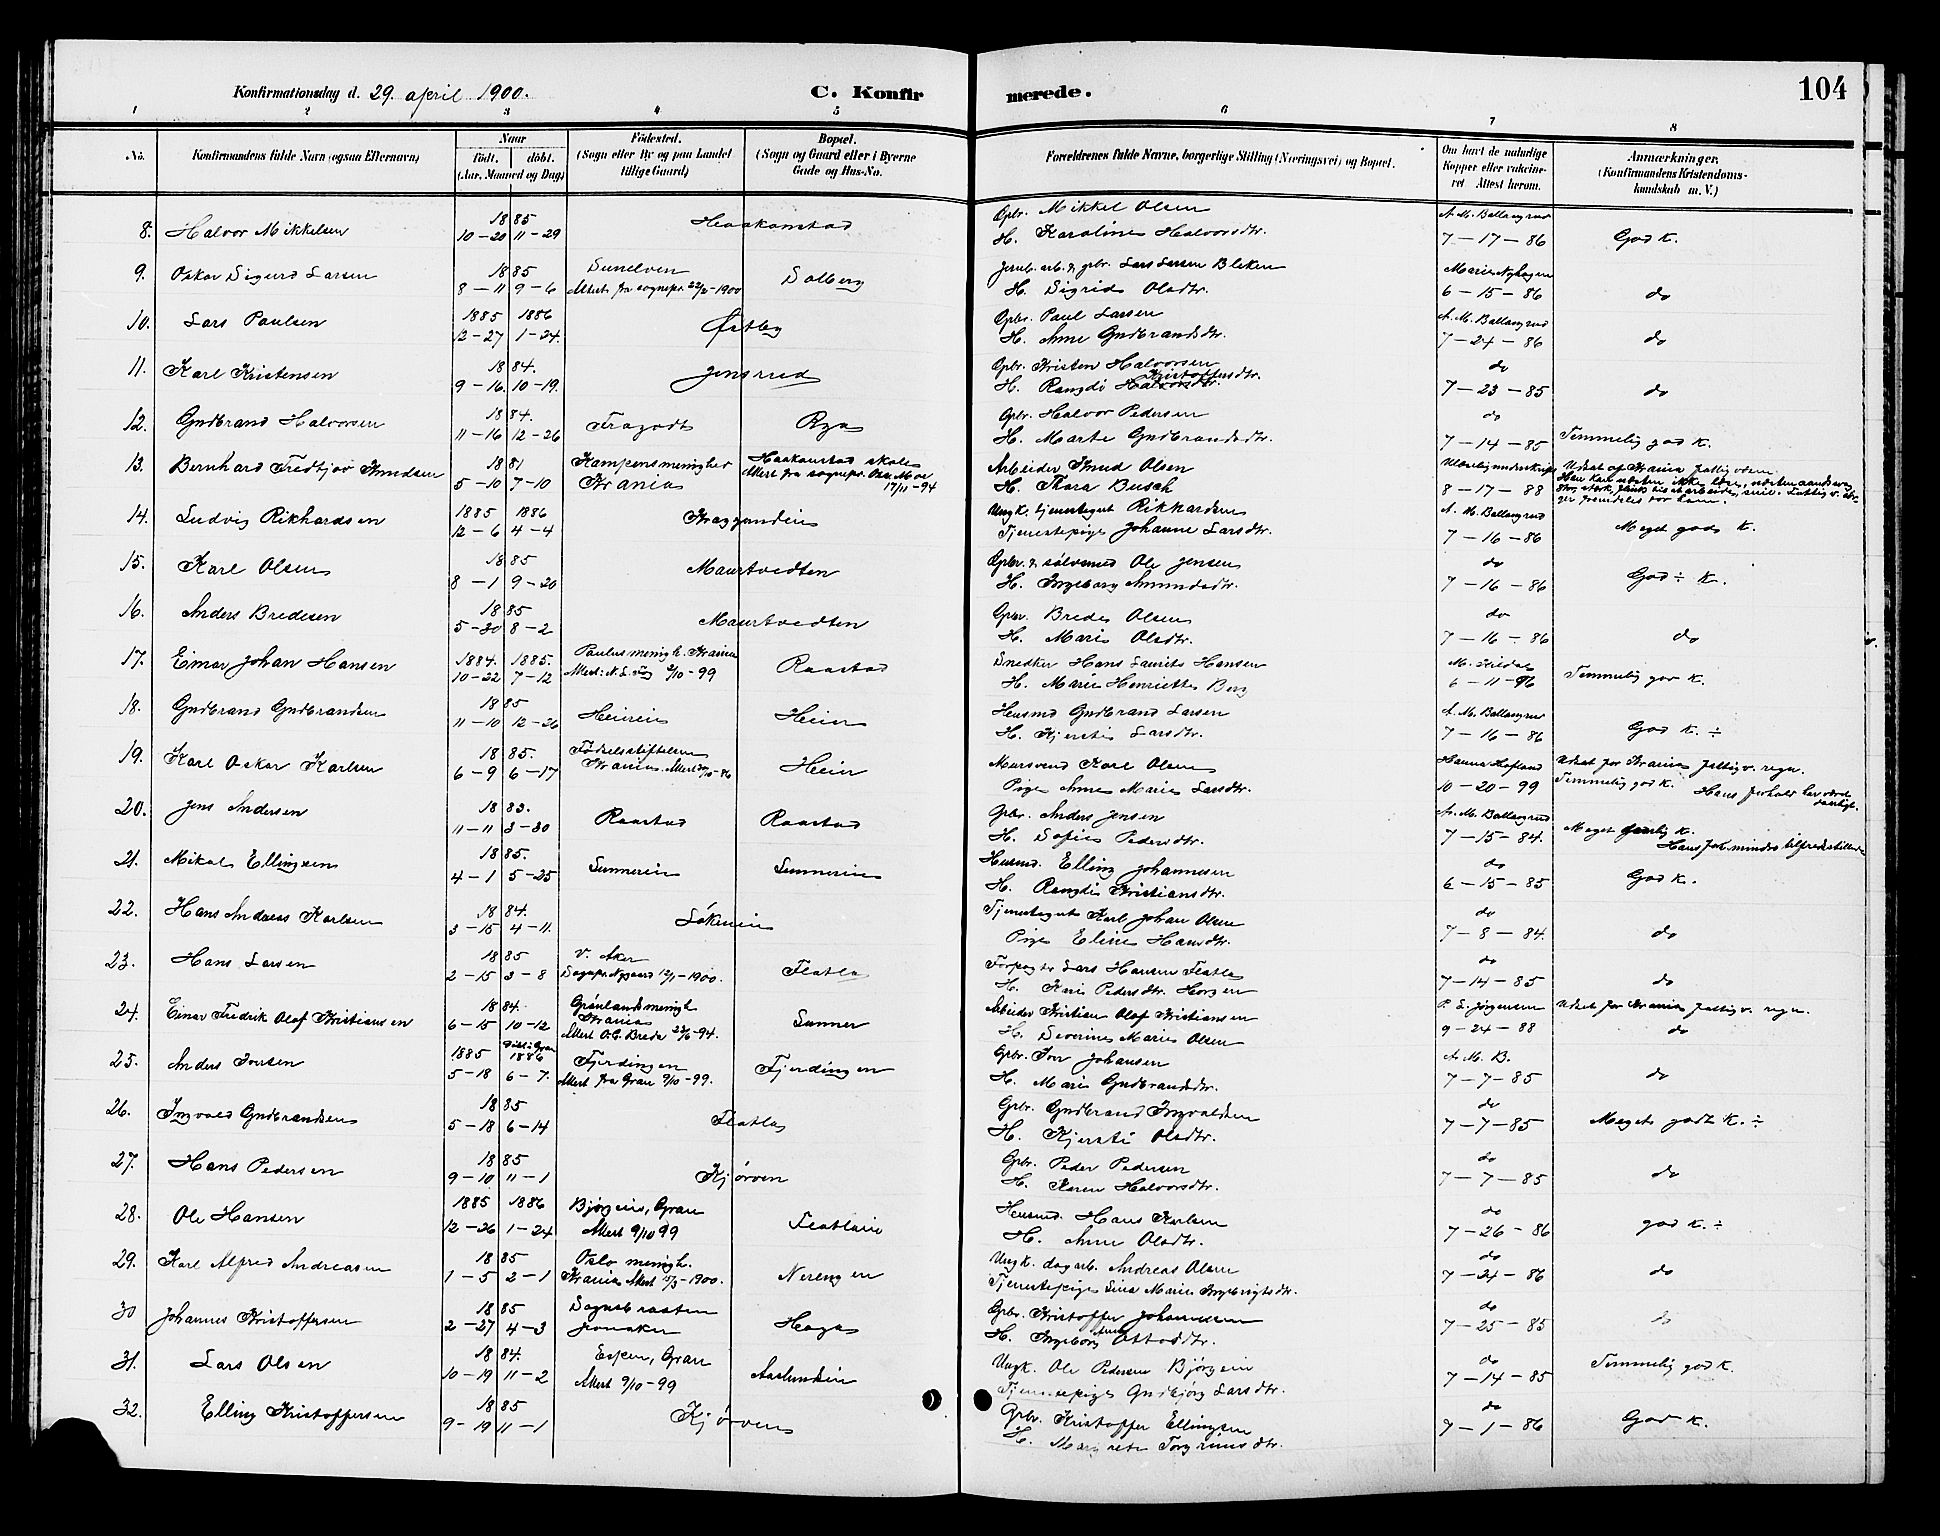 Konfirmationsdag d. 29. april 1900. C. Konfirmerede. 104
1 2 3 4 5 6 7 8
No. Konfirmandens fulde Navn (ogsaa Efternavn) Naar født. døbt. (Aar, Maaned og Dag) Fødested. (Sogn eller By og paa Landet tillige Gaard) Bopæl. (Sogn og Gaard eller i Byerne Gade og Hus-No. Forældrenes fulde Navne, borgerlige Stilling (Næringsvei) og Bopæl. Om havt de naturlige Kopper eller vakcineret. Attest herom. Anmærkninger. (Konfirmandens Kristendomskundskab m. V.)
8. Halvor Mikkelsen 1885 10-20 11-29 Haakonstad Gbr. Mikkel Olsen A. M. Ballangrud
H. Karoline Halvorsdtr. 7-17-86 God K.
9. Oskar Sigurd Larsen 1885 8-11 9-6 Sunelven Solberg Jernb. arb. & gbr. Lars Larsen Bleken Marie Nyhagen
Attest fra sognepr. 22/2-1900 H. Sigrid Olsdtr. 6-15-86 do
10. Lars Paulsen 1885 1886 12-27 1-24. Østby Gbr. Paul Larsen A. M. Ballangrud
H. Anne Gudbrandsdtr. 7-24-86 do
11. Karl Kristensen 1884. 9-16 10-19. Jensrud Gbr. Kristen Halvorsen do
H. Rangdi Halvorsdtr. Kristoffersdtr. 7-23-85 do
12. Gudbrand Halvorsen 1884. 11-16 12-26 Fragodt Rya Gbr. Halvor Pedersen do
H. Marte Gudbrandsdtr. 7-14-85 Temmelig god K.
13. Bernhard Fredtjov Knudsen 1881 5-10 7-10 Kampens menighed Haakonstad skole Arbeider Knud Olsen
Krania Attest fra sognepr. Moe 17/11-94 H. Thora Busch 8-17-88
14. Ludvig Rikhardsen 1885 1886 12-6 4-4 Kraggondeie Ungk. tjenestegut Rikhardsen A. M. Ballangrud
Tjenestepige Johanne Larsdtr. 7-16-86 Meget god K.
15. Karl Olsen 1885 8-1 9-20 Maurtvedten Gbr. & sølvsmed Ole Jensen do
H. Ingeborg Amundsdtr. 7-16-86 God ÷ K.
16. Anders Bredesen 1885 5-30 8-2 Maurtvedten Gbr. Brede Olsen do
H. Mari Olsdtr. 7-16-86 do
17. Einar Johan Hansen 1884. 1885. 10-22 7-12 Paulus menigh. Krania Raastad Snedker Hans Laurits Hansen
Attest: 10-99 H. Marie Henriette Berg 6-11-96 Temmelig god K.
18. Gudbrand Gudbrandsen 1885 11-10 12-26 Heieneie Heier Husmd Gudbrand Larsen A. M. Ballangrud
H. Kjersti Larsdtr. 7-16-86 God K. ÷
19. Karl Oskar Karlsen 1885. 6-9 6-17 Fødselsstiftelsen Heier Karl Olsen Hanna Udsat for Kranias fattigv. regn.
Krania. Attest Pige Anne Marie Larsdtr. 10-20-99 Temmelig god K. Hans forhold har været daarligt.
20. Jens Andersen 1883. 11-11 3-30 Raastad Raastad Gbr. Anders Jensen A. M. Ballangrud
H. Sofie Pedersdtr. 7-15-84. Meget K. Hans mindre tilfredsstillende
21. Mikal Ellingsen 1885. 4-1 5-25 Sunnereie Sunnereie Husmd. Elling Johannesen do
H. Rangdi Kristiansdtr. 6-15-85 God K.
22. Hans Andreas Karlsen 1884. 3-15 4-11. Løkeneie Tjenestegut Karl Johan Olsen do
Pige Eline Hansdtr. 7-8-84. do
23. Hans Larsen 1885 2-15 3-8 V. Aker Flatla Forpagter Lars Hansen Flatla do
Sognepr. Nygaard 12/1-1900. H. Kari Pedersdtr. Horgen 7-14-85 do
24. Einar Fredrik Olaf Kristiansen 1884. 6-15 10-12 Grønlands menigh. Sunner Arbeider Kristian Olaf Kristiansen P. L. Jørgensen Udsat for Kranias fattigv. regn.
Krania Attest O. C. Breda 22/6-94. H. Severine Marie Olsen 9-24-88 do
25. Anders Iversen 1885 1886 5-18 6-7. Fjerdingen Fjerdingen Gbr. Iver Johansen A. M. B.
Attest fra Gran 9/10-99. H. Mari Gudbrandsdtr. 7-7-85 do
26. Ingvald Gudbrandsen 1885 5-18 6-14 Flatla Gbr. Gudbrand Ingvaldsen do
H. Kjersti Olsdtr. 7-7-85 Meget godt K. ÷
27. Hans Pedersen 1885 9-10 11-1 Kjørven Gbr. Peder Pedersen do
H. Karen Halvorsdtr. 7-7-85 do
28. Ole Hansen 1885 1886 12-26 1-24 Bjørgeeie, Gran Flatlaeie Husmd. Hans Karlsen do
Attest 9/10 99 H. Anne Olsdtr. 7-26-86 god K. ÷
29. Karl Alfred Andreasen 1885 1-5 2-1 Oslo menigh. Nerengen Ungk. dagarb. Andreas Olsen do
Krania Attest 15/3-1900. Tjenestepige Lina Marie Ingebrigtsdtr. 7-24-86 do
30 Johannes Kristoffersen 1885 2-27 4-3 Sognsbraaten Haga Gbr. Kristoffer Johannesen do
Jevnaker H. Ingeborg Anne Ottosdtr. 7-25-85 do
31. Lars Olsen 1884. 10-19 11-2 Espen, Gran Aaslundeie Ungk. Ole Pedersen Bjørgeeie do
Attest 9/10-99 Tjenestepige Gudbjørg Larsdtr. 7-14-85 Temmelig god K.
32. Elling Kristoffersen 1885 9-19 11-1 Kjørven Gbr. Kristoffer Ellingsen do
H. Margrete Torgrimsdtr. 7-1-86 God K.